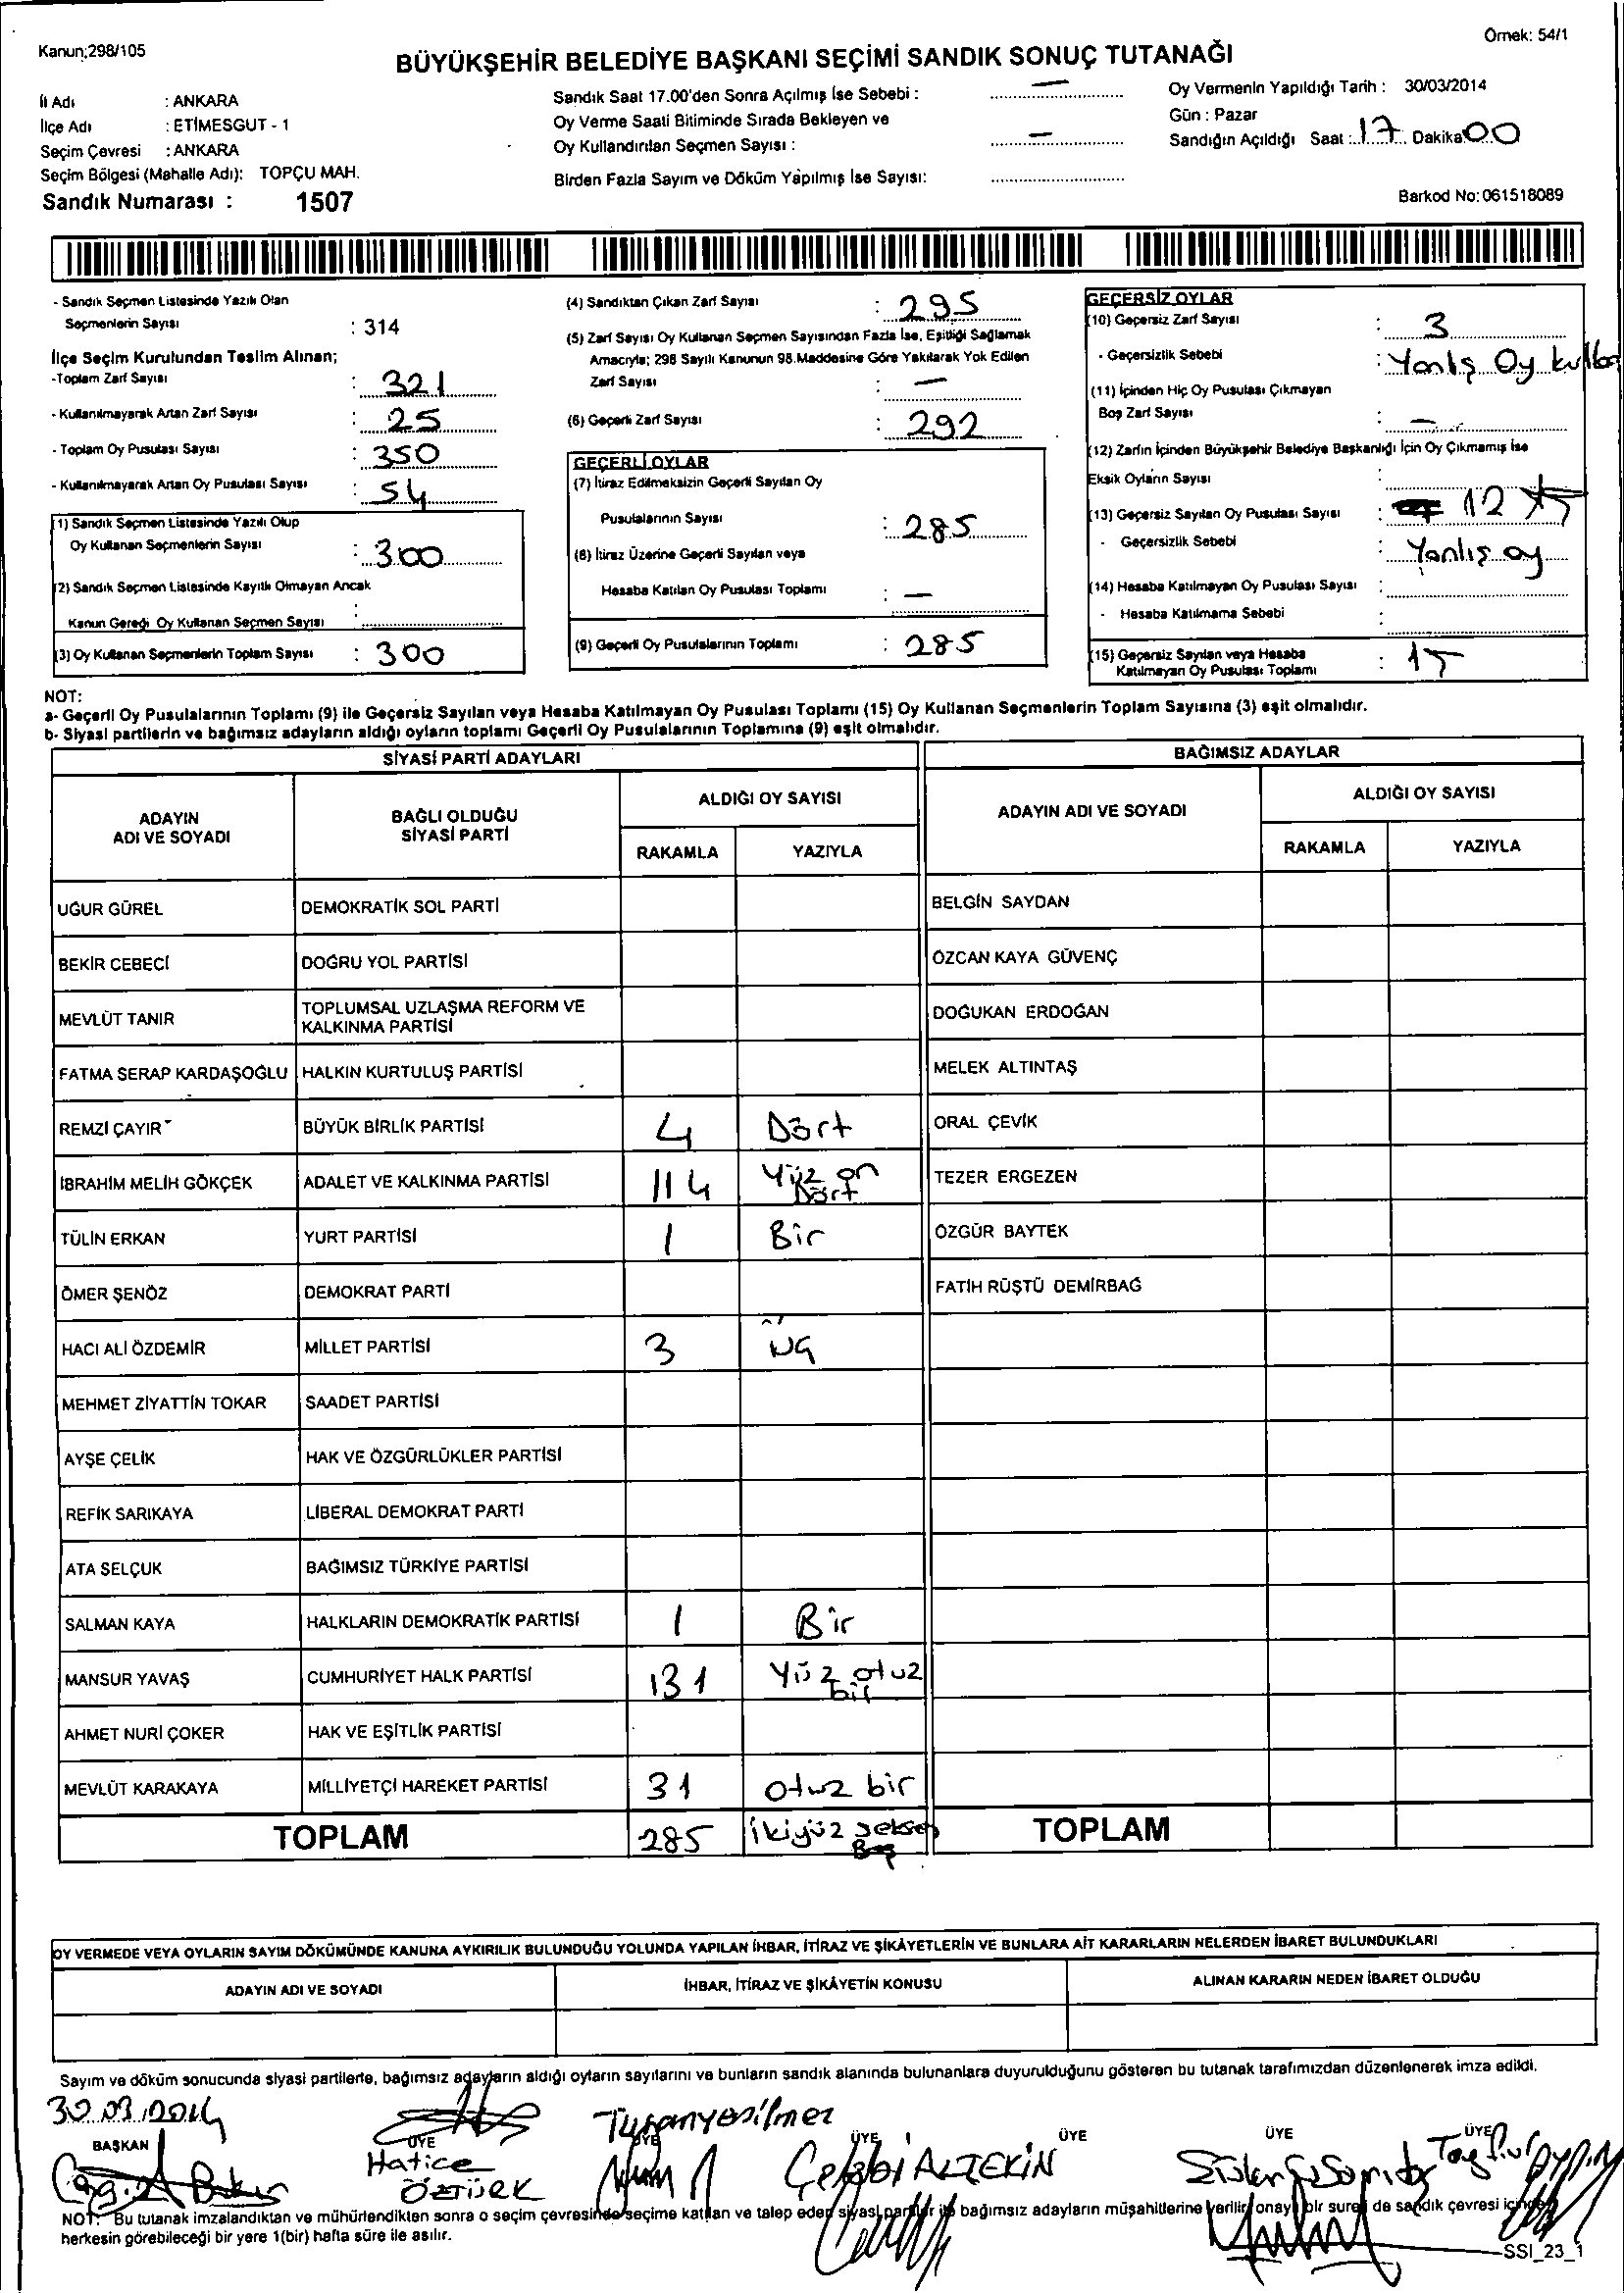 Kanun;298/105
Örnek: 54/1
BÜYÜKŞEHİR BELEDİYE BAŞKANI SEÇİMİ SANDIK SONUÇ TUTANAĞI
İl Adı : ANKARA
İlçe Adı : ETİMESGUT - 1
Seçim Çevresi : ANKARA
Seçim Bölgesi (Mahalle Adı): TOPÇU MAH.
Sandık Numarası : 1507
Sandık Saat 17.00'den Sonra Açılmış İse Sebebi : —
Oy Verme Saati Bitiminde Sırada Bekleyen ve
Oy Kullandırılan Seçmen Sayısı : —
Birden Fazla Sayım ve Döküm Yapılmış İse Sayısı:
Oy Vermenin Yapıldığı Tarih : 30/03/2014
Gün : Pazar
Sandığın Açıldığı Saat : 17 Dakika 00
Barkod No: 061518089
- Sandık Seçmen Listesinde Yazılı Olan
Seçmenlerin Sayısı : 314
İlçe Seçim Kurulundan Teslim Alınan;
-Toplam Zarf Sayısı : 321
- Kullanılmayarak Artan Zarf Sayısı : 25
- Toplam Oy Pusulası Sayısı : 350
- Kullanılmayarak Artan Oy Pusulası Sayısı : 54
(1) Sandık Seçmen Listesinde Yazılı Olup
Oy Kullanan Seçmenlerin Sayısı : 300
(2) Sandık Seçmen Listesinde Kayıtlı Olmayan Ancak
Kanun Gereği Oy Kullanan Seçmen Sayısı :
(3) Oy Kullanan Seçmenlerin Toplam Sayısı : 300
(4) Sandıktan Çıkan Zarf Sayısı : 295
(5) Zarf Sayısı Oy Kullanan Seçmen Sayısından Fazla İse, Eşitliği Sağlamak
Amacıyla; 298 Sayılı Kanunun 98.Maddesine Göre Yakılarak Yok Edilen
Zarf Sayısı : —
(6) Geçerli Zarf Sayısı : 292
GEÇERLİ OYLAR
(7) İtiraz Edilmeksizin Geçerli Sayılan Oy
Pusulalarının Sayısı : 285
(8) İtiraz Üzerine Geçerli Sayılan veya
Hesaba Katılan Oy Pusulası Toplamı : —
(9) Geçerli Oy Pusulalarının Toplamı : 285
GEÇERSİZ OYLAR
(10) Geçersiz Zarf Sayısı : 3
- Geçersizlik Sebebi : Yanlış Oy
(11) İçinden Hiç Oy Pusulası Çıkmayan
Boş Zarf Sayısı : —
(12) Zarfın İçinden Büyükşehir Belediye Başkanlığı İçin Oy Çıkmamış İse
Eksik Oyların Sayısı :
(13) Geçersiz Sayılan Oy Pusulası Sayısı : 12
- Geçersizlik Sebebi : Yanlış oy
(14) Hesaba Katılmayan Oy Pusulası Sayısı :
- Hesaba Katılmama Sebebi :
(15) Geçersiz Sayılan veya Hesaba
Katılmayan Oy Pusulası Toplamı : 15
NOT:
a- Geçerli Oy Pusulalarının Toplamı (9) ile Geçersiz Sayılan veya Hesaba Katılmayan Oy Pusulası Toplamı (15) Oy Kullanan Seçmenlerin Toplam Sayısına (3) eşit olmalıdır.
b- Siyasi partilerin ve bağımsız adayların aldığı oyların toplamı Geçerli Oy Pusulalarının Toplamına (9) eşit olmalıdır.
SİYASİ PARTİ ADAYLARI
BAĞIMSIZ ADAYLAR
ADAYIN ADI VE SOYADI
BAĞLI OLDUĞU SİYASİ PARTİ
ALDIĞI OY SAYISI
RAKAMLA YAZIYLA
ADAYIN ADI VE SOYADI
ALDIĞI OY SAYISI
RAKAMLA YAZIYLA
UĞUR GÜREL DEMOKRATİK SOL PARTİ BELGİN SAYDAN
BEKİR CEBECİ DOĞRU YOL PARTİSİ ÖZCAN KAYA GÜVENÇ
MEVLÜT TANIR TOPLUMSAL UZLAŞMA REFORM VE KALKINMA PARTİSİ DOĞUKAN ERDOĞAN
FATMA SERAP KARDAŞOĞLU HALKIN KURTULUŞ PARTİSİ MELEK ALTINTAŞ
REMZİ ÇAYIR BÜYÜK BİRLİK PARTİSİ 4 Dört ORAL ÇEVİK
İBRAHİM MELİH GÖKÇEK ADALET VE KALKINMA PARTİSİ 114 Yüz on Dört TEZER ERGEZEN
TÜLİN ERKAN YURT PARTİSİ 1 Bir ÖZGÜR BAYTEK
ÖMER ŞENÖZ DEMOKRAT PARTİ FATİH RÜŞTÜ DEMİRBAĞ
HACI ALİ ÖZDEMİR MİLLET PARTİSİ 3 üç
MEHMET ZİYATTİN TOKAR SAADET PARTİSİ
AYŞE ÇELİK HAK VE ÖZGÜRLÜKLER PARTİSİ
REFİK SARIKAYA LİBERAL DEMOKRAT PARTİ
ATA SELÇUK BAĞIMSIZ TÜRKİYE PARTİSİ
SALMAN KAYA HALKLARIN DEMOKRATİK PARTİSİ 1 Bir
MANSUR YAVAŞ CUMHURİYET HALK PARTİSİ 131 Yüz otuz bir
AHMET NURİ ÇOKER HAK VE EŞİTLİK PARTİSİ
MEVLÜT KARAKAYA MİLLİYETÇİ HAREKET PARTİSİ 31 otuz bir
TOPLAM 285 ikiyüz seksen Beş TOPLAM
OY VERMEDE VEYA OYLARIN SAYIM DÖKÜMÜNDE KANUNA AYKIRILIK BULUNDUĞU YOLUNDA YAPILAN İHBAR, İTİRAZ VE ŞİKÂYETLERİN VE BUNLARA AİT KARARLARIN NELERDEN İBARET BULUNDUKLARI
ADAYIN ADI VE SOYADI İHBAR, İTİRAZ VE ŞİKÂYETİN KONUSU ALINAN KARARIN NEDEN İBARET OLDUĞU
Sayım ve döküm sonucunda siyasi partilerle, bağımsız adayların aldığı oyların sayılarını ve bunların sandık alanında bulunanlara duyurulduğunu gösteren bu tutanak tarafımızdan düzenlenerek imza edildi.
30.03.2014
BAŞKAN ÜYE ÜYE ÜYE ÜYE ÜYE ÜYE
Hatice ÖZTÜRK
Çelebi ALTEKİN
NOT: Bu tutanak imzalandıktan ve mühürlendikten sonra o seçim çevresinde seçime katılan ve talep eden siyasi partiler ile bağımsız adayların müşahitlerine verilir, onaylı bir sureti de sandık çevresi içinde
herkesin görebileceği bir yere 1(bir) hafta süre ile asılır.
SSI_23_1